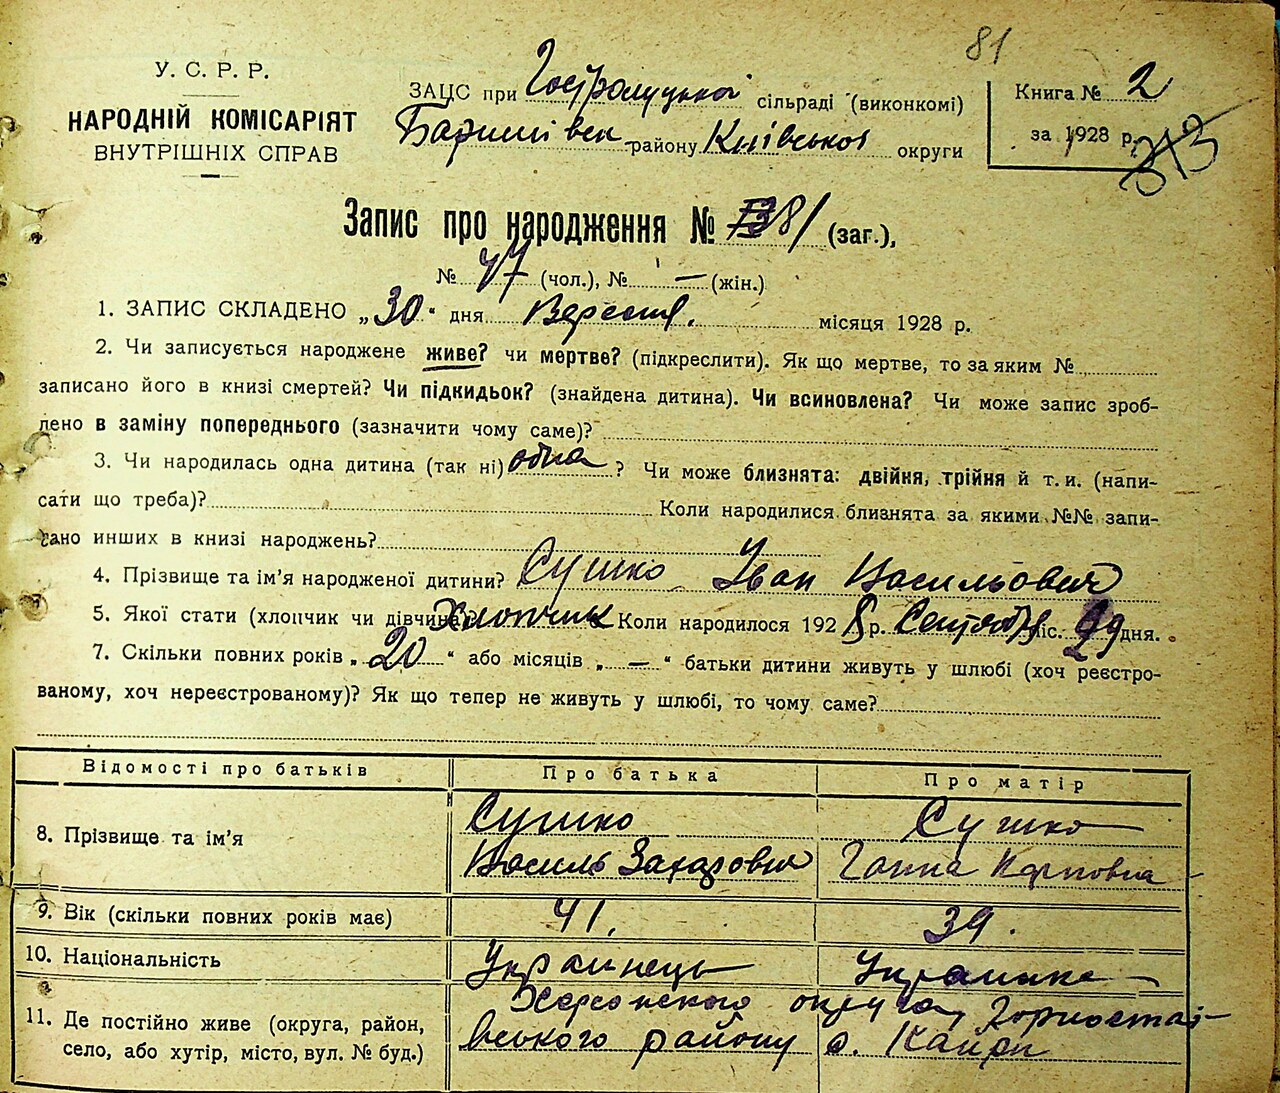 81
У. С. Р. Р.
НАРОДНІЙ КОМІСАРІЯТ
ВНУТРІШНІХ СПРАВ
ЗАЦС при Гостролуцькой сільраді (виконкомі)
Баришівськ району Київської округи
Книга № 2
за 1928 р.
313
Запис про народження № 81 (заг.),
№ 47 (чол.), № — (жін.)
1. ЗАПИС СКЛАДЕНО „30“ дня Вересня. місяця 1928 р.
2. Чи записується народжене живе? чи мертве? (підкреслити). Як що мертве, то за яким №
записано його в книзі смертей? Чи підкидьок? (знайдена дитина). Чи всиновлена? Чи може запис зроб-
лено в заміну попереднього (зазначити чому саме)?
3. Чи народилась одна дитина (так ні) одна ? Чи може близнята: двійня, трійня й т. и. (напи-
сати що треба)? Коли народилися близнята за якими №№ запи-
сано инших в книзі народжень?
4. Прізвище та ім’я народженої дитини? Сушко Іван Васильович
5. Якої стати (хлопчик чи дівчина)? Хлопчик Коли народилося 1928 р. Сентября міс. 29 дня.
7. Скільки повних років „20“ або місяців „—“ батьки дитини живуть у шлюбі (хоч реєстро-
ваному, хоч нереєстрованому)? Як що тепер не живуть у шлюбі, то чому саме?
Відомості про батьків Про батька Про матір
8. Прізвище та ім’я Сушко Василь Захарович Сушко Ганна Карповна
9. Вік (скільки повних років має) 41. 39.
10. Національність Українець Українка
11. Де постійно живе (округа, район, Херсонского округа, Горностаї-
село, або хутір, місто, вул. № буд.) вського району с. Каїри